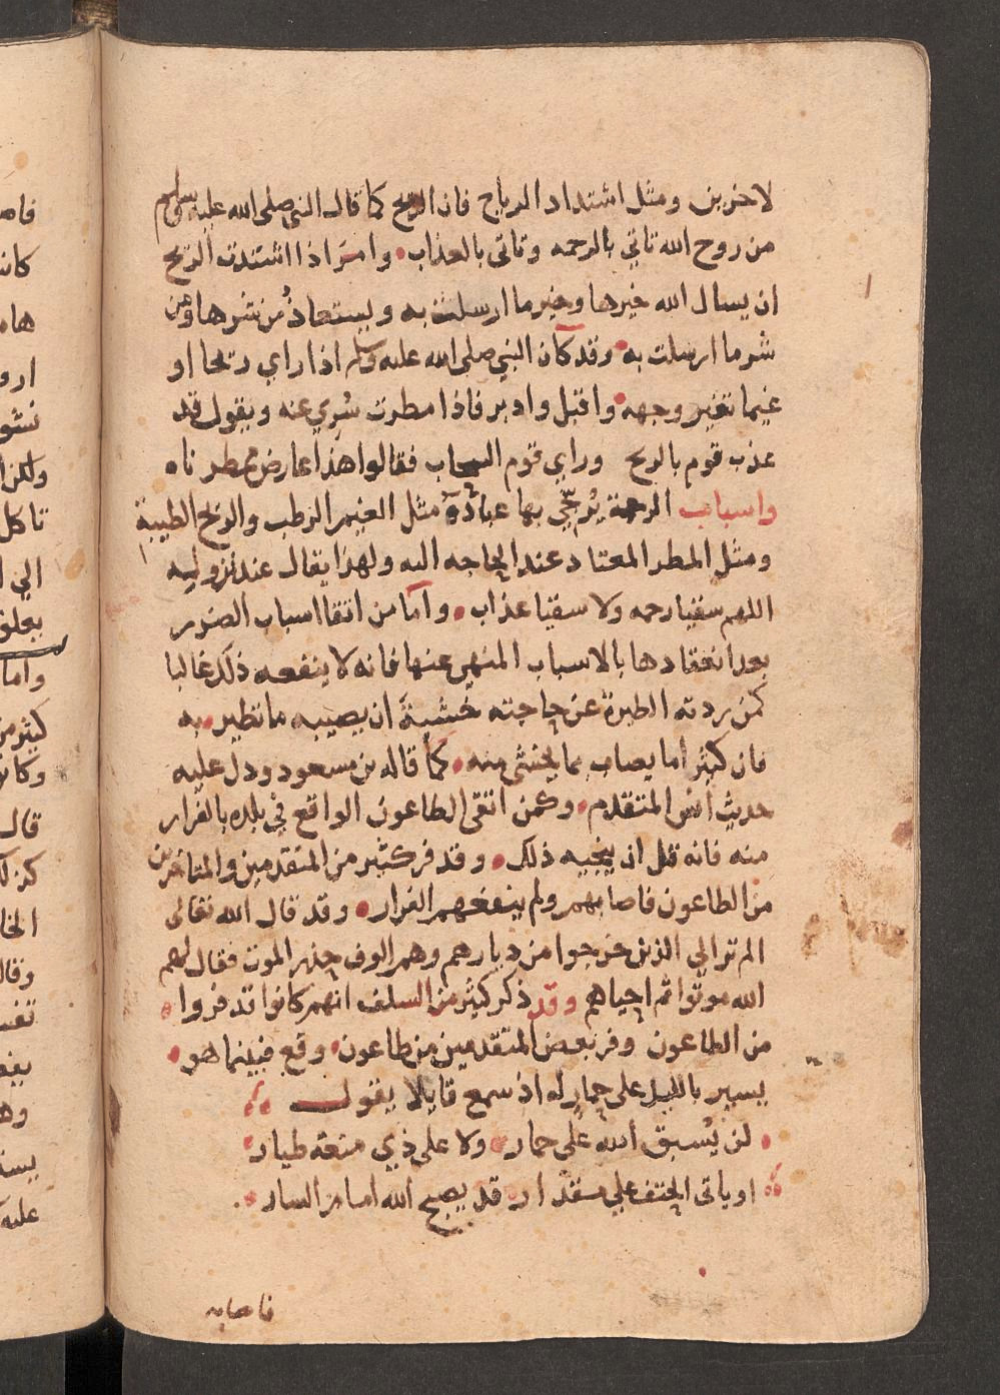 لاخرين ومثل اشتداد الرياح فان الريح كما قال النبي صلى الله عليه وسلم
من روح الله تاتي بالرحمه وتاتى بالعذاب وامر اذا اشتدت الريح
ان يسال الله خيرها وخير ما ارسلت به ويستعاذ من شرها ومن
شر ما ارسلت به وقد كان النبي صلى الله عليه وسلم اذا راي ريحا او
غيما تغير وجهه واقبل وادبر فاذا مطرت سُري عنه ويقول قد
عذب قوم بالريح وراي قوم السحاب فقالوا هذا عارض ممطرناه
واسباب الرحمة يُرجّي بها عباده مثل الغيم الرطب والريح الطيبة
ومثل المطر المعتاد عند الحاجه اليه ولهذا يقال عند نزوليه
اللهم سقيا رحمه ولا سقيا عذاب واما من اتقا اسباب الضرر
بعد انعقادها بالاسباب المنهي عنها فانه لا ينفعه ذلك غالبا
كمن ردته الطيرة عن حاجته خشية ان يصيبه ما تطير به
فان كثيرا ما يصاب بما يخشى منه كما قاله بن مسعود ودل عليه
حديث انس المتقدم وكمن اتقى الطاعون الواقع في بلده بالفرار
منه فانه قل ان ينجيه ذلك وقد فر كثير من المتقدمين والمتاخرين
من الطاعون فاصابهم ولم ينفعهم الفرار وقد قال الله تعالى
الم تر الي الذين خرجوا من ديارهم وهم الوف حذر الموت فقال لهم
الله موتوا ثم احياهم وقد ذكر كثير من السلف انهم كانوا قد فروا
من الطاعون وفر بعض المتقدمين من طاعون وقع فبينما هو
يسير بالليل على حمار له اذ سمع قايلا يقول
لن يُسبق الله على حمار ولا على ذي منعة طيار
او ياتى الحتف علي مقدار قد يصبح الله امام السار
فاصابه